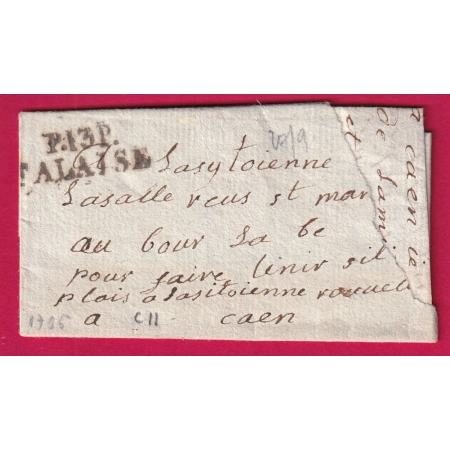 P.13P.
FALAISE
28/9
a Lasytoienne
Lasalle reus st mar
au bour La be
pour faire tenir sil
plais a Lasitoienne
a caen
1795 C11
r caen ce
de Lami
et